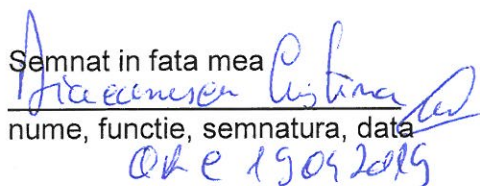 Semnat in fata mea
Cristina
nume, functie, semnatura, data
19 04 2019